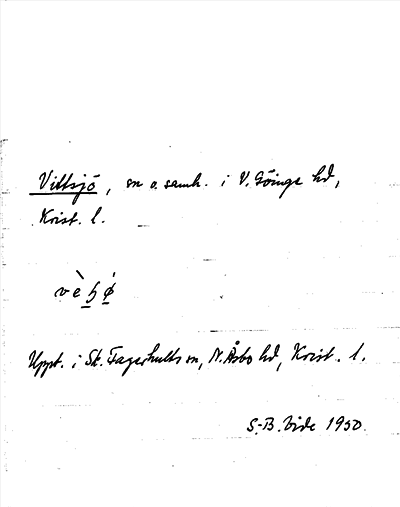 Vittsjö, sn o. samh. i V. Göinge hd,
Krist. l.
Uppt. i Sk. Fagerhults sn, N. Åsbo hd, Krist. l.
S.-B. Vide 1950.